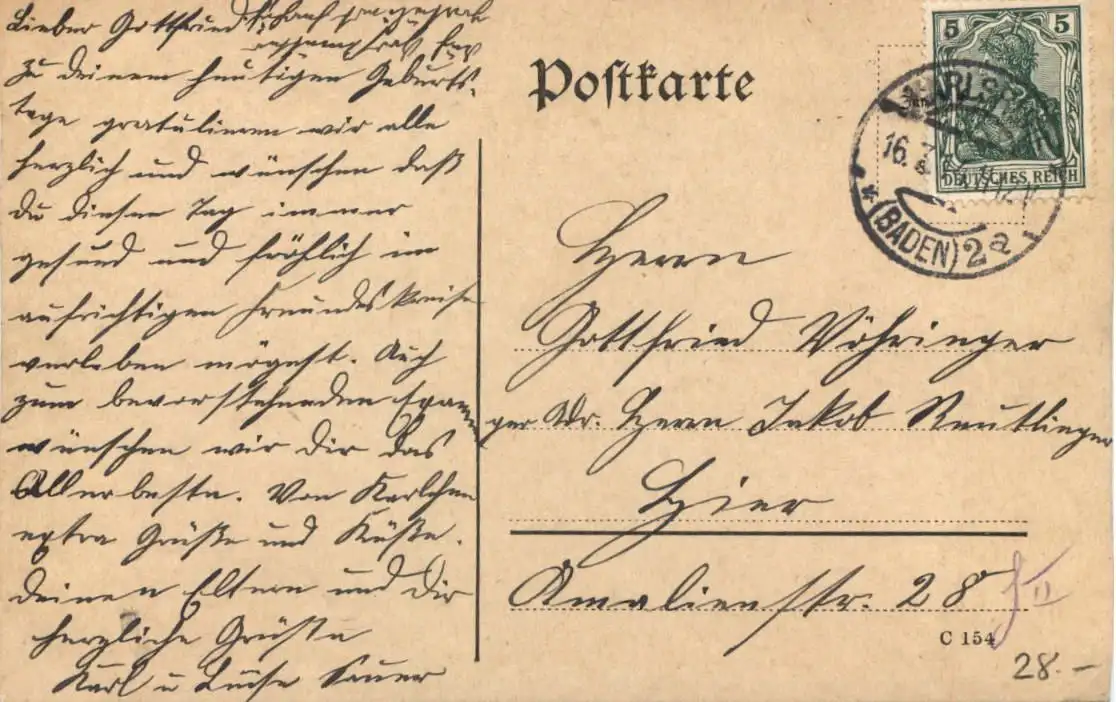 Lieber Gottfried
zu deinem heutigen Geburts-
tage gratulieren wir alle
herzlich und wünschen daß
du diesen Tag immer
gesund und fröhlich im
aufrichtigen Freundeskreise
verleben mögest. Auch
zum bevorstehenden Examen
wünschen wir dir das
Allerbeste. Von Karlchen
extra Grüße und Küße.
Deinen Eltern und dir
herzliche Grüße
Karl u Luise Sauer
Postkarte
5 5
DEUTSCHES REICH
KARLSR
16.
* (BADEN) 2a
Herrn
Gottfried Vöhringer
per Adr. Herrn Jakob Reutlinger
Hier
Amalienstr. 28 II
C 154
28.-